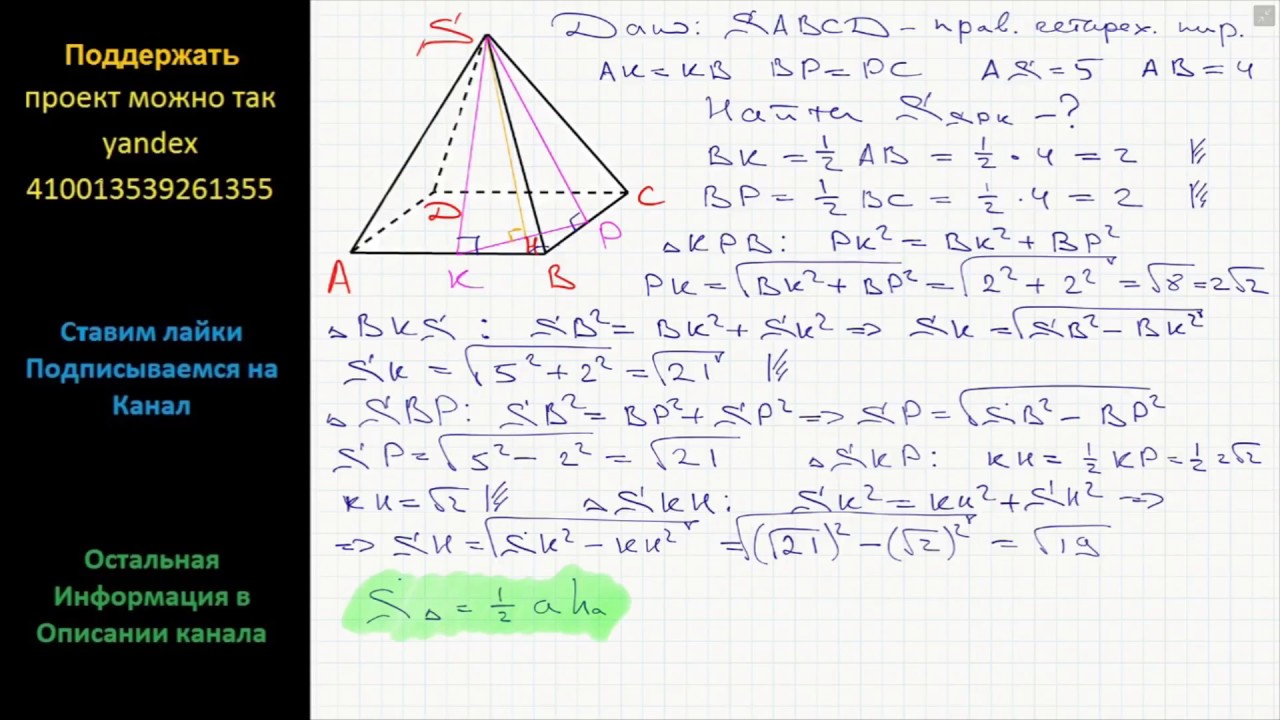 Поддержать
проект можно так
yandex
410013539261355
Ставим лайки
Подписываемся на
Канал
Остальная
Информация в
Описании канала
S
A
B
C
D
K
P
H
Дано: SABCD – прав. четырех. пир.
AK = KB BP = PC AS = 5 AB = 4
Найти S_SPK – ?
BK = 1/2 AB = 1/2 · 4 = 2
BP = 1/2 BC = 1/2 · 4 = 2
△KPB: PK² = BK² + BP²
PK = √(BK² + BP²) = √(2² + 2²) = √8 = 2√2
△BKS: SB² = BK² + SK² => SK = √(SB² – BK²)
SK = √(5² + 2²) = √21
△SBP: SB² = BP² + SP² => SP = √(SB² – BP²)
SP = √(5² – 2²) = √21 △SKP: KH = 1/2 KP = 1/2 2√2
KH = √2 △SKH: SK² = KH² + SH² =>
=> SH = √(SK² – KH²) = √((√21)² – (√2)²) = √19
S△ = 1/2 a hₐ